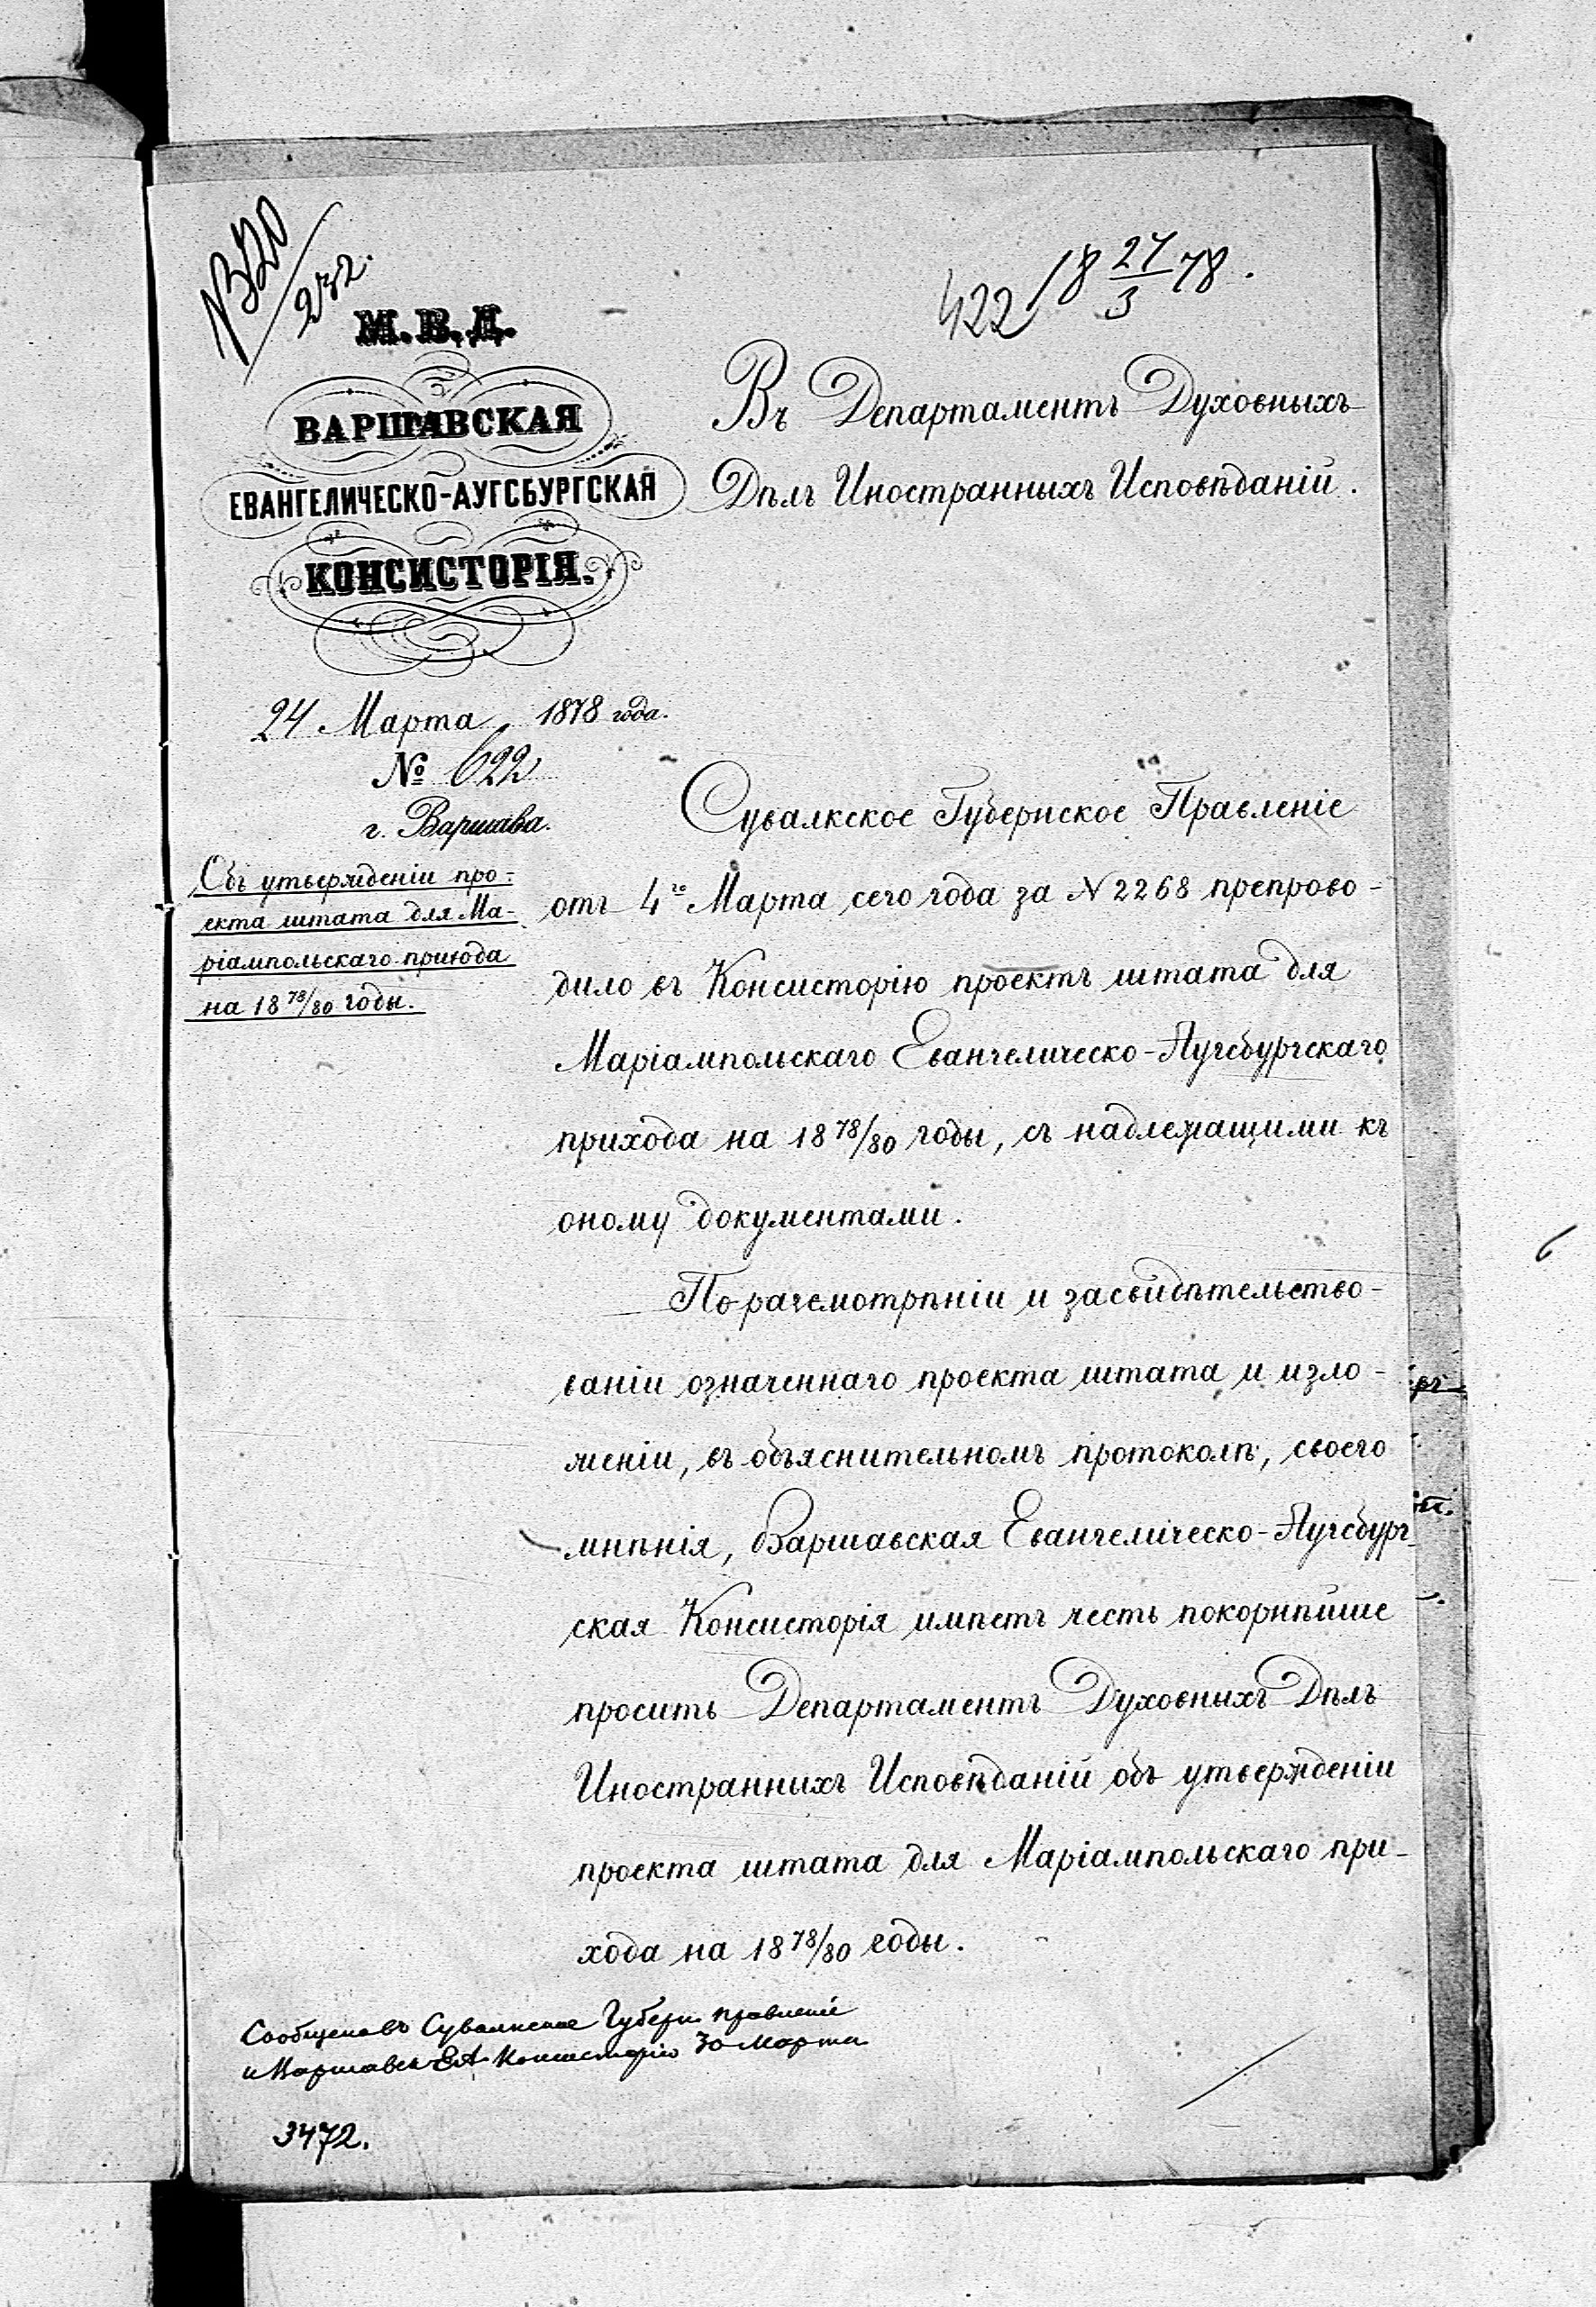 № 320
/232.
422 18 27/3 78.
М. В. Д.
ВАРШАВСКАЯ
ЕВАНГЕЛИЧЕСКО-АУГСБУРГСКАЯ
КОНСИСТОРІЯ.
24 Марта 1878 года.
№ 622
г. Варшава.
Объ утвержденіи про-
екта штата для Ма-
ріампольскаго прихода
на 18 78/80 годы.
Въ Департаментъ Духовныхъ
Дѣлъ Иностранныхъ Исповѣданій.
Сувалкское Губернское Правленіе
отъ 4го Марта сего года за № 2268 препрово-
дило въ Консисторію проектъ штата для
Маріампольскаго Евангелическо-Аугсбургскаго
прихода на 18 78/80 годы, съ надлежащими къ
оному документами.
По разсмотрѣніи и засвидѣтельство-
ваніи означеннаго проекта штата и изло-
женіи, въ объяснительномъ протоколѣ, своего
мнѣнія, Варшавская Евангелическо-Аугсбург-
ская Консисторія имѣетъ честь покорнѣйше
просить Департаментъ Духовныхъ Дѣлъ
Иностранныхъ Исповѣданій объ утвержденіи
проекта штата для Маріампольскаго при-
хода на 18 78/80 годы.
Сообщено въ Сувалкское Губерн. Правленіе
и Варшавск ЕА Консисторію 30 Марта
3472.